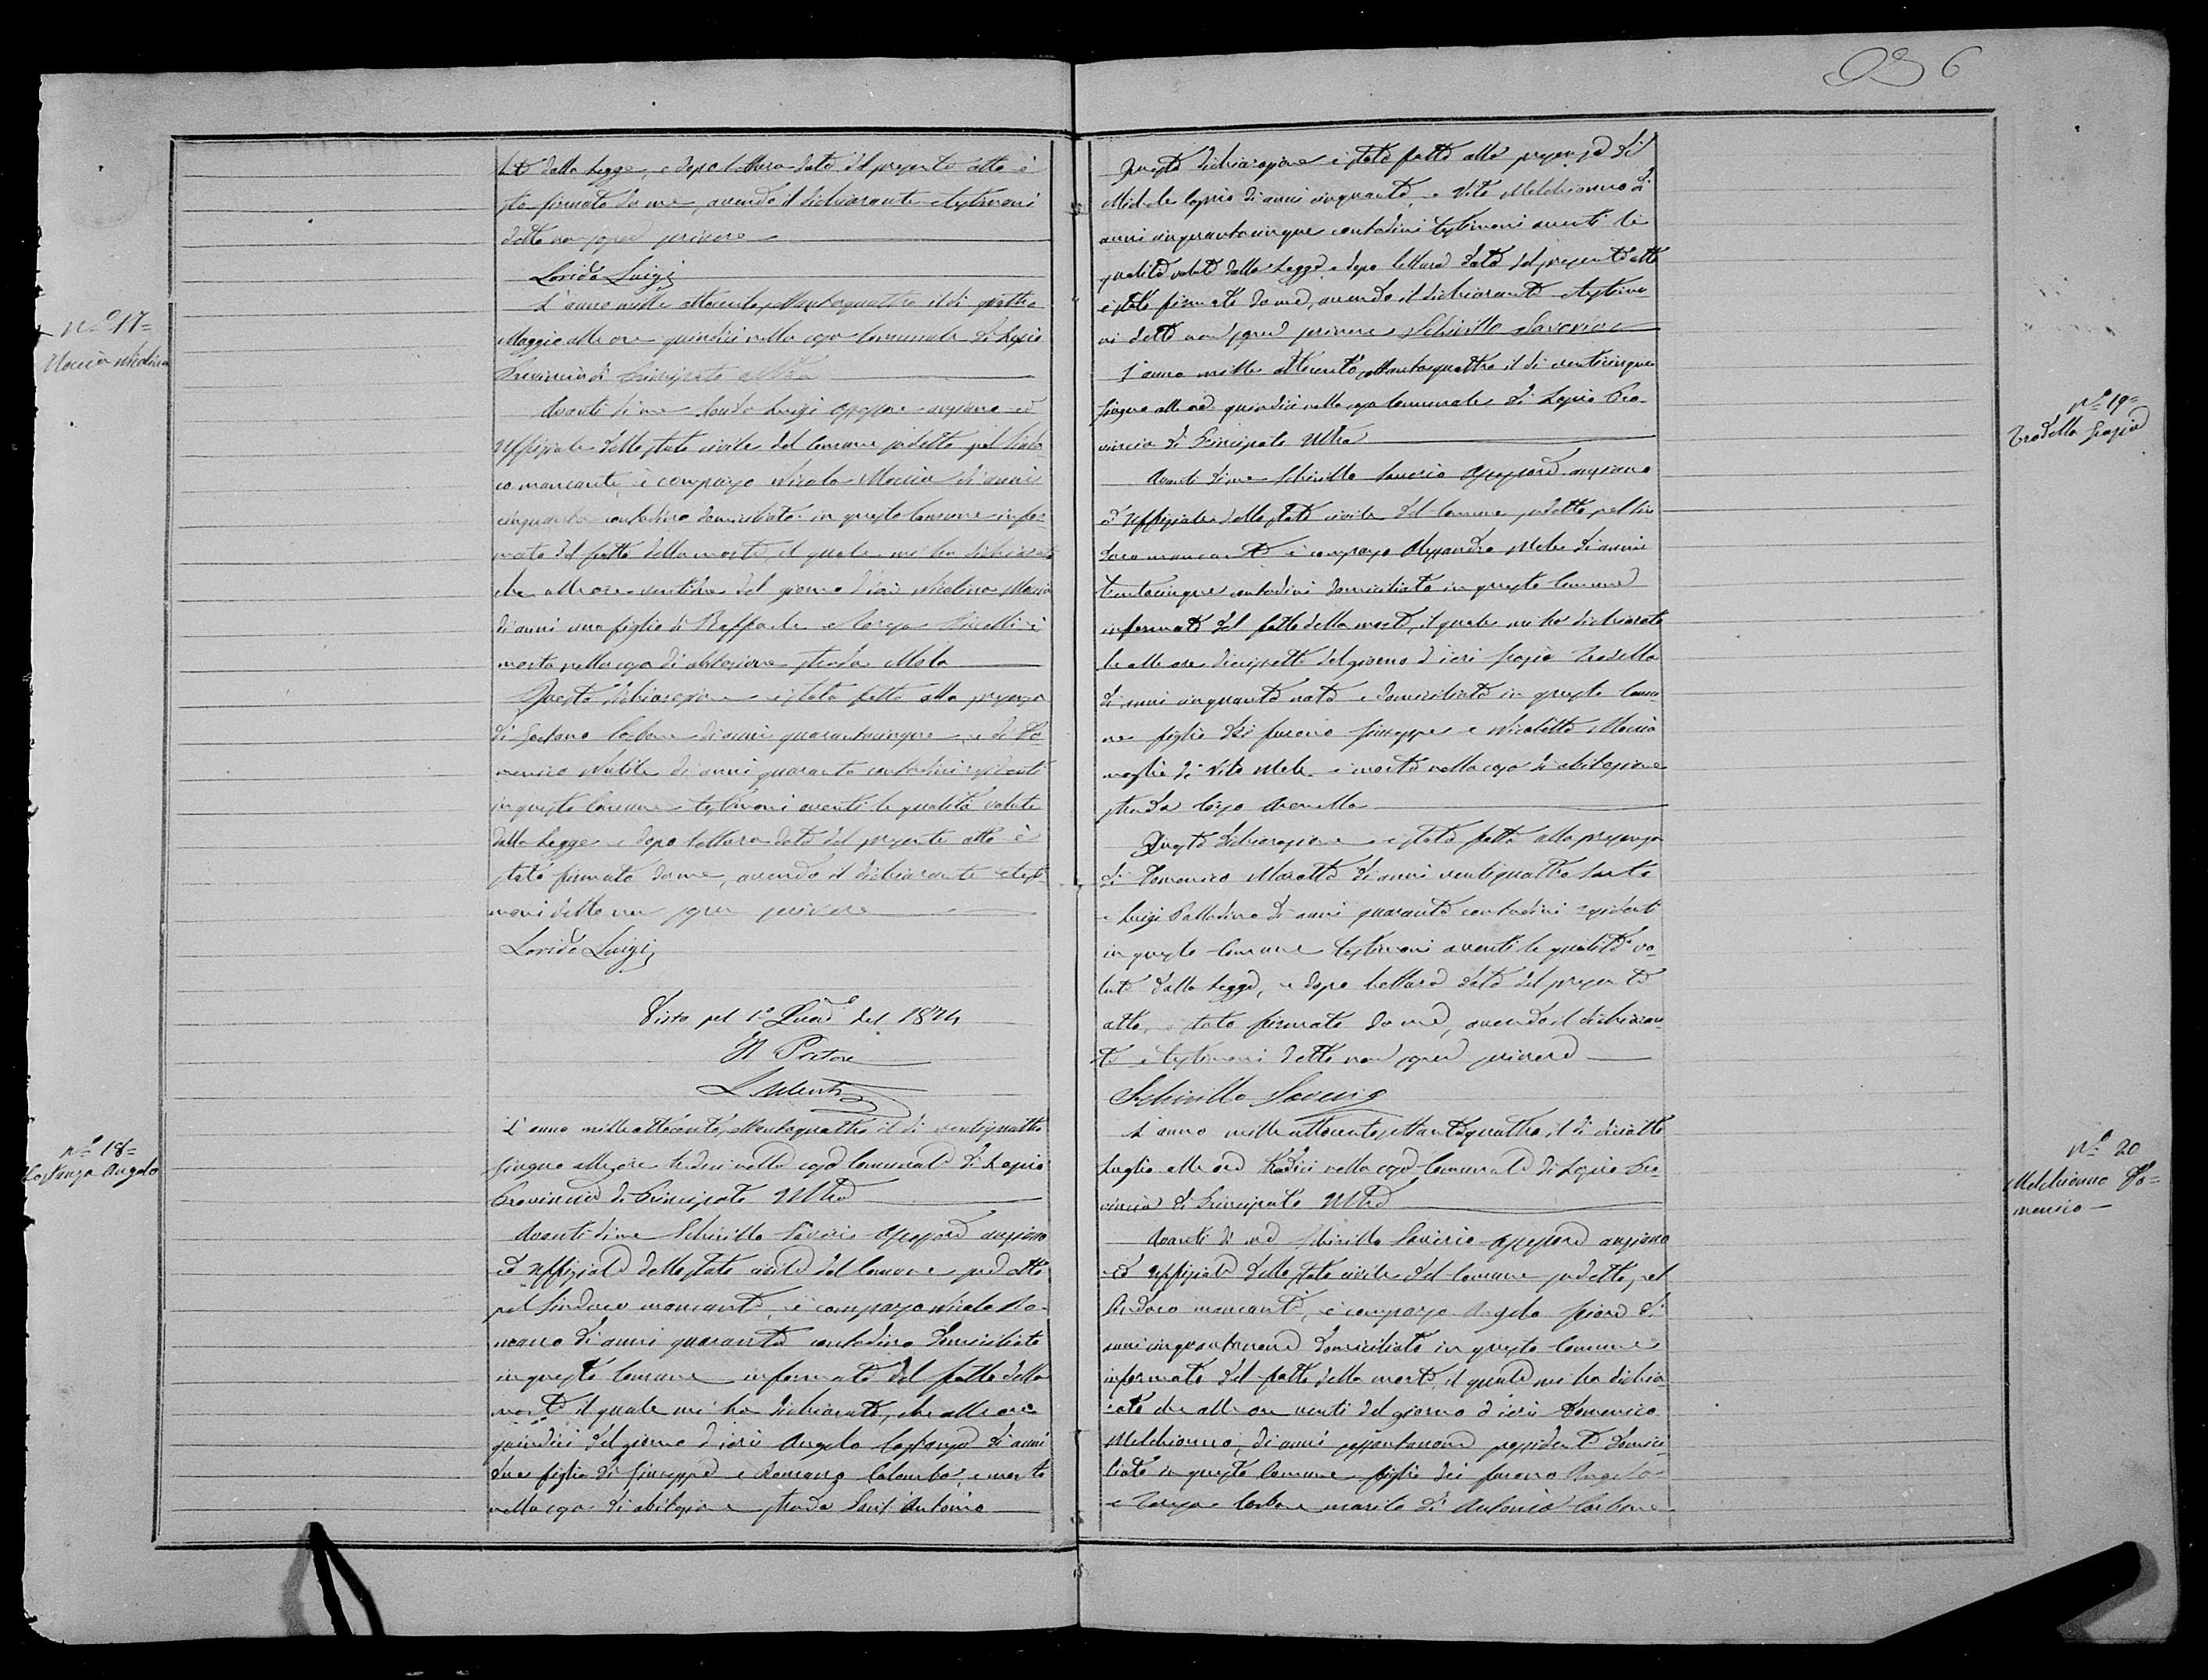 6
luto dalla Legge, e dopo lettura data del presente atto è
stato firmato da me, avendo il dichiarante e testimoni
detto non saper scrivere
Luigi
N.º 17=
Moccia Nicolina
L'anno mille ottocento settantaquattro il dì quattro
Maggio alle ore quindici nella casa Comunale di Lapio
Provincia di Principato Ultra
Avanti di me Luigi Assessore anziano ed
Uffiziale dello stato civile del Comune suddetto pel Sinda-
co mancante, è comparso Nicola Moccia di anni
cinquanta contadino domiciliato in questo Comune infor-
mato del fatto della morte, il quale mi ha dichiarato
che alle ore ventidue del giorno d'ieri Nicolina Moccia
di anni una figlia di Raffaele e Teresa è
morta nella casa di abitazione strada Mele
Questa dichiarazione è stata fatta alla presenza
di Gaetano Carbone di anni quarantacinque, e di Do-
menico di anni quaranta contadini residenti
in questo Comune testimoni aventi le qualità volute
dalla Legge e dopo lettura data del presente atto è
stato firmato da me, avendo il dichiarante e testi-
moni detto non saper scrivere
Luigi
Visto pel 1º Quad. del 1874
Il Pretore
N.º 18=
Costanza Angelo
L'anno mille ottocento settantaquattro il dì ventiquattro
Giugno alle ore tredici nella casa Comunale di Lapio
Provincia di Principato Ultra
Avanti di me Schirillo Saverio Assessore anziano
ed Uffiziale dello Stato civile del Comune suddetto
pel Sindaco mancante, è comparso Nicola Ro-
mano di anni quaranta contadino domiciliato
in questo Comune informato del fatto della
morte il quale mi ha dichiarato, che alle ore
quindici del giorno d'ieri Angelo Costanza di anni
due figlio di Giuseppe e Romano Colomba, è morto
nella casa di abitazione strada Sant'Antonio
Questa dichiarazione è stata fatta alla presenza di
Michele di anni cinquanta, e Vito Melchionno di
anni cinquantacinque contadini testimoni aventi le
qualità volute dalla Legge e dopo lettura data del presente atto
è stato firmato da me, avendo il dichiarante e testimo-
ni detto non saper scrivere Schirillo Saverio
N.º 19=
Trodella Grazia
L'anno mille ottocento settantaquattro il dì venticinque
Giugno alle ore quindici nella casa Comunale di Lapio Pro-
vincia di Principato Ultra
Avanti di me Schirillo Saverio Assessore anziano
ed Uffiziale dello stato civile del Comune suddetto pel Sin-
daco mancante è comparso Alessandro Mele di anni
trentacinque contadini domiciliato in questo Comune
informato del fatto della morte, il quale mi ha dichiarato
che alle ore diciasette del giorno d'ieri Grazia Trodella
di anni cinquanta nata e domiciliata in questo Comu-
ne figlia dei furono Giuseppe e Nicoletta Moccia
moglie di Vito Mele è morta nella casa di abitazione
strada Carmella
Questa dichiarazione è stata fatta alla presenza
di Domenico Marotta di anni ventiquattro sarto
e Luigi Palladino di anni quaranta contadini residenti
in questo Comune testimoni aventi le qualità vo-
lute dalla Legge, e dopo lettura data del presente
atto, è stato firmato da me, avendo il dichiaran-
te e testimoni detto non saper scrivere
Schirillo Saverio
N.º 20
Melchionno Do=
menico
L'anno mille ottocento settantaquattro, il dì diciotto
Luglio alle ore tredici nella casa Comunale di Lapio Pro-
vincia di Principato Ultra
Avanti di me Schirillo Saverio Assessore anziano
ed Uffiziale dello Stato civile del Comune suddetto, pel
Sindaco mancante, è comparso Angelo Fiore di
anni cinquantanove domiciliato in questo Comune
informato del fatto della morte il quale mi ha dichia-
rato che alle ore venti del giorno d'ieri Domenico
Melchionno, di anni sessantanove possidente domici-
liato in questo Comune figlio dei furono Angelo
e Teresa Carbone marito di Antonia Carbone